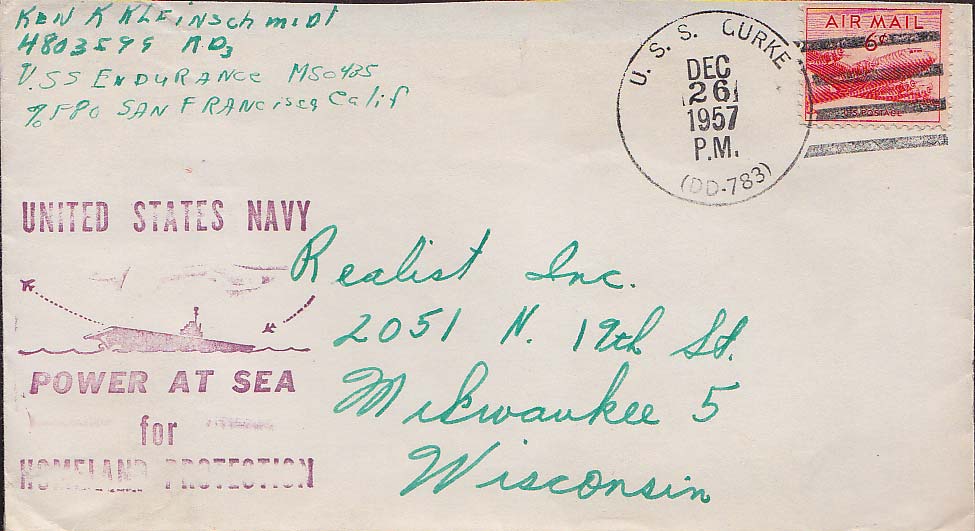 KEN K KLEinSchmiDt
4803599 RD3
USS EnDURAnce MSO435
% FPO SAN FRANcisco Calif
U. S. S. GURKE
DEC
26
1957
P.M.
(DD-783)
AIR MAIL
6¢
U.S. POSTAGE
UNITED STATES NAVY
POWER AT SEA
for
HOMELAND PROTECTION
Realist Inc.
2051 N. 19th St.
Milwaukee 5
Wisconsin